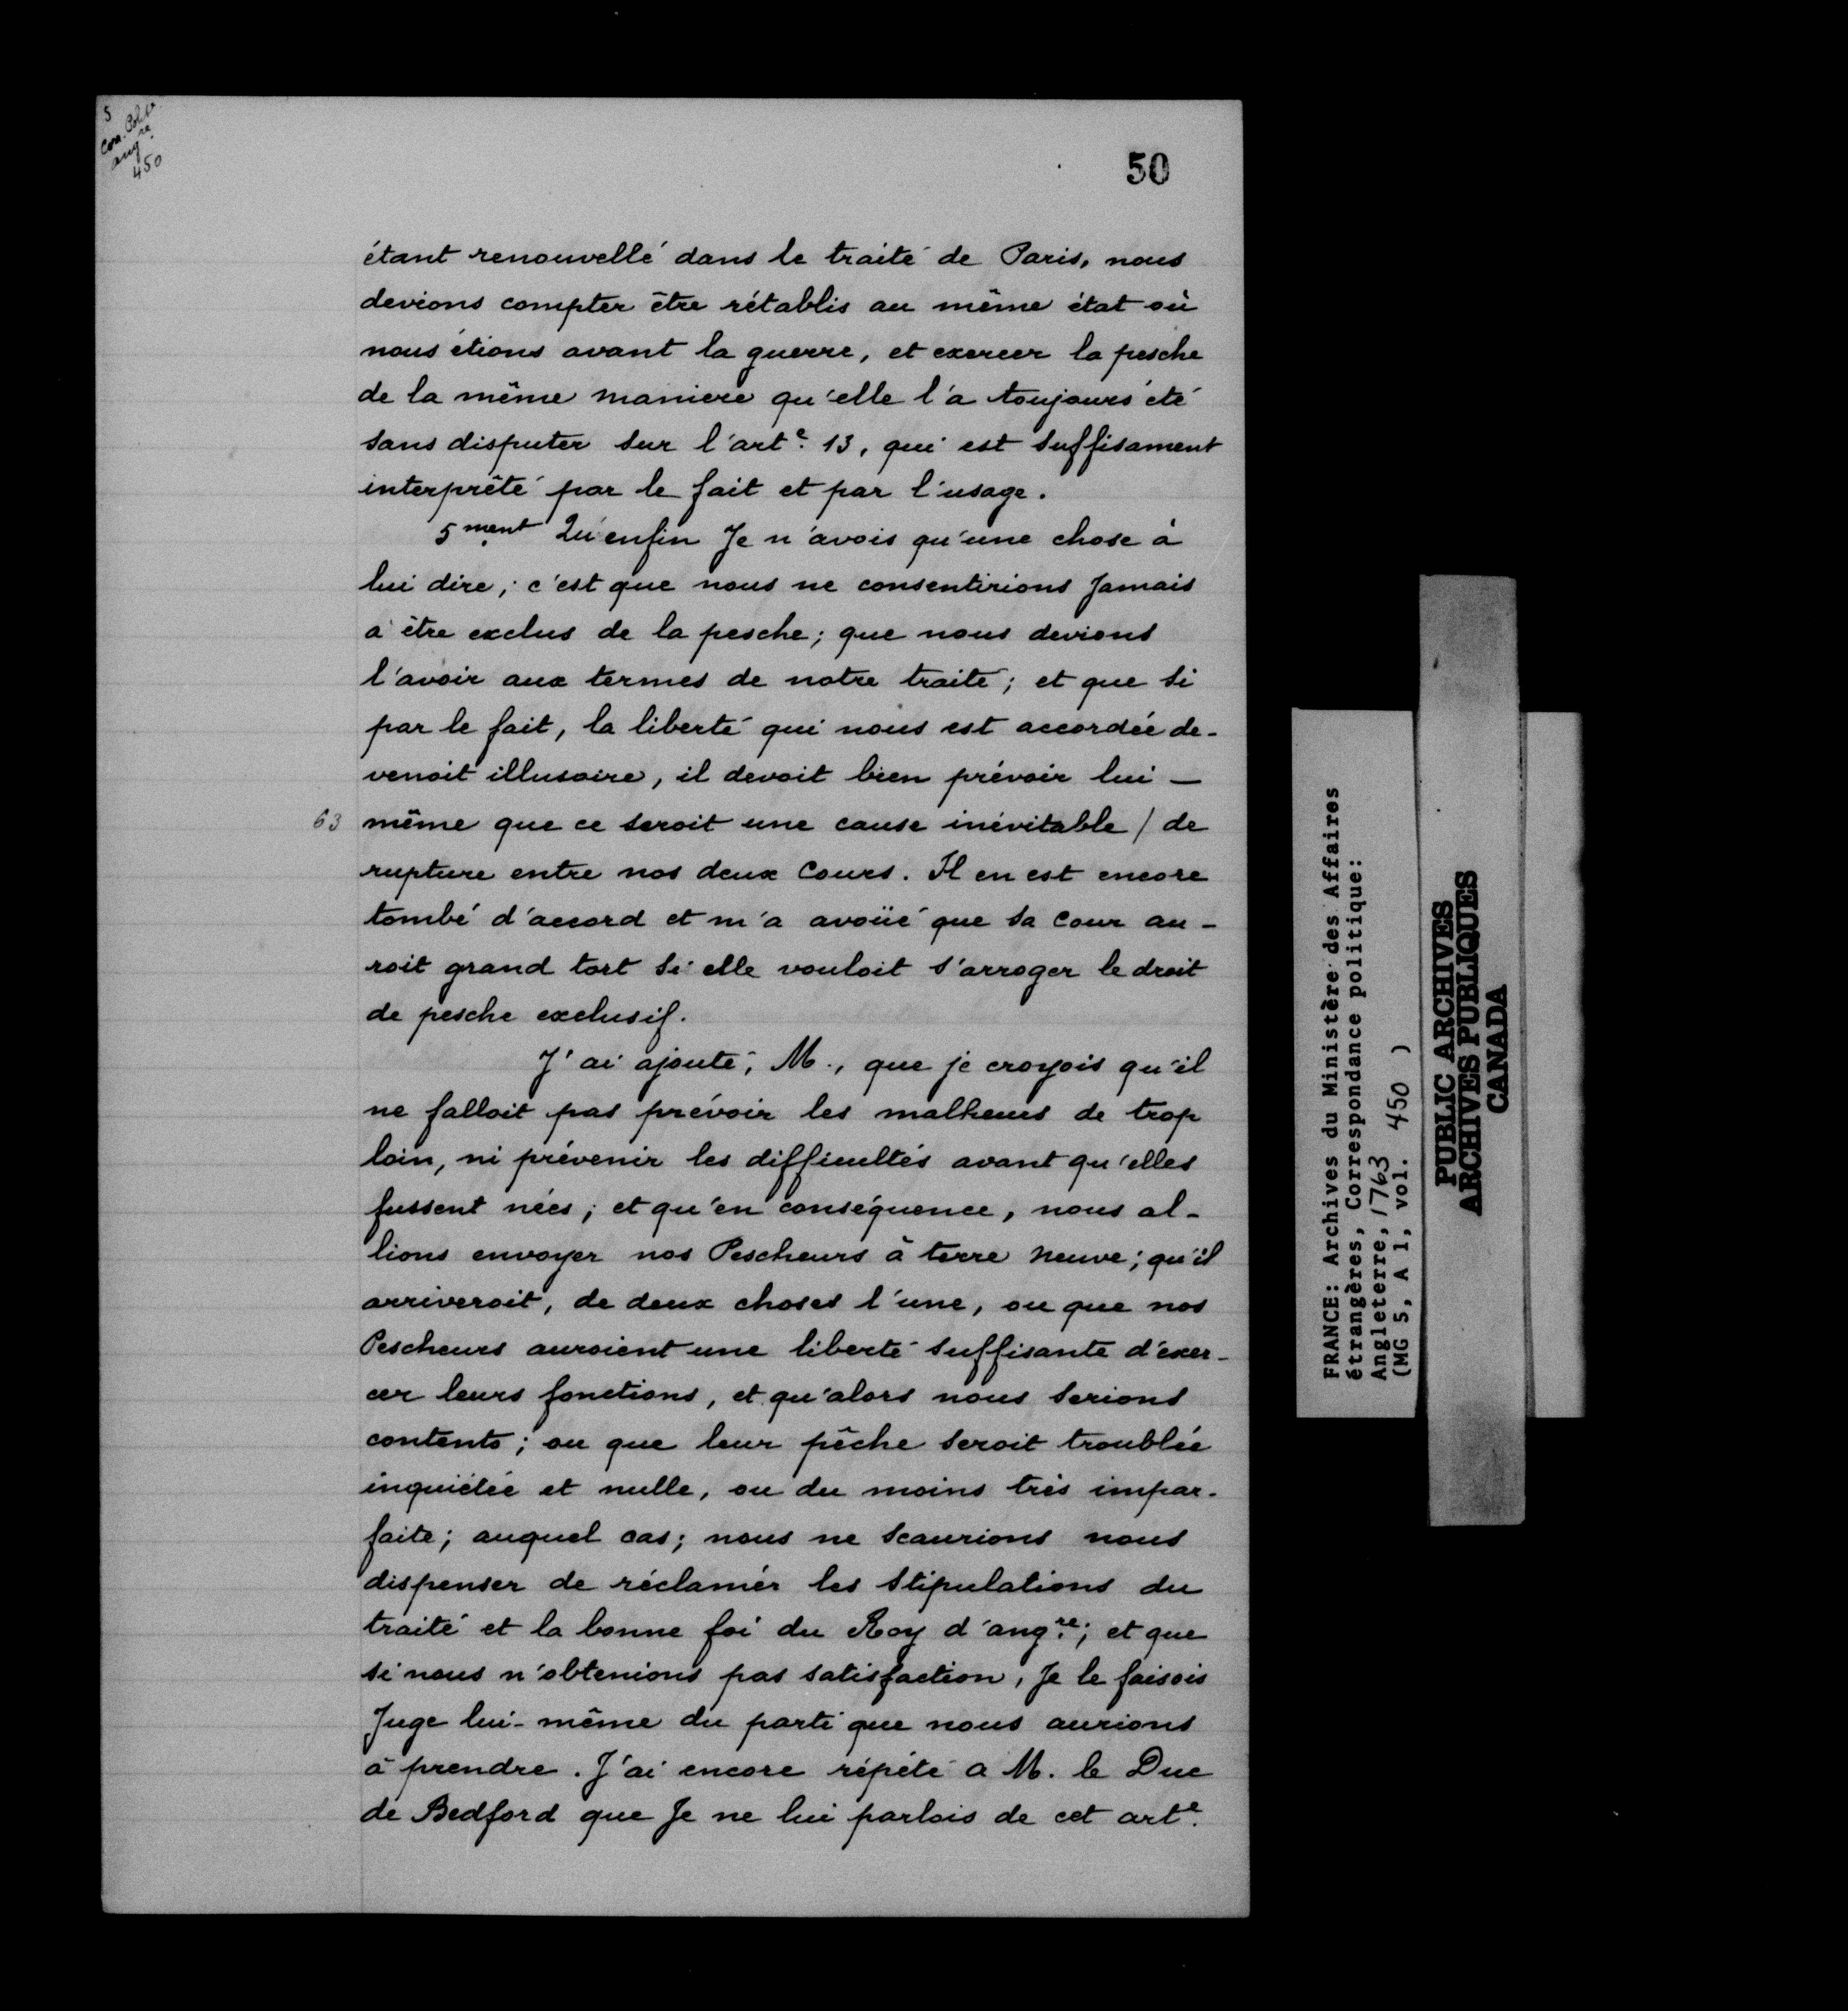 5
Corr. Polit.
angre.
450
50
étant renouvellé dans le traité de Paris, nous
devions compter être rétablis au même état où
nous étions avant la guerre, et exercer la pesche
de la même maniere qu'elle l'a toujours été
sans disputer sur l'arte. 13, qui est suffisament
interprêté par le fait et par l'usage.
5ment Qu'enfin Je n'avois qu'une chose à
lui dire; c'est que nous ne consentirions Jamais
a être exclus de la pesche; que nous devions
l'avoir aux termes de notre traité; et que si
par le fait, la liberté qui nous est accordée de-
venoit illusoire, il devoit bien prévoir lui-
63 même que ce seroit une cause inévitable / de
rupture entre nos deux Cours. Il en est encore
tombé d'accord et m'a avoüé que sa Cour au-
roit grand tort si elle vouloit s'arroger le droit
de pesche exclusif.
J'ai ajouté, M., que je croyois qu'il
ne falloit pas prévoir les malheurs de trop
loin, ni prévenir les difficultés avant qu'elles
fussent nées; et qu'en conséquence, nous al-
lions envoyer nos Pescheurs à terre Neuve; qu'il
arriveroit, de deux choses l'une, ou que nos
Pescheurs auroient une liberté suffisante d'exer-
cer leurs fonctions, et qu'alors nous serions
contents; ou que leur pêche seroit troublée
inquiétée et nulle, ou du moins très impar-
faite; auquel cas; nous ne scaurions nous
dispenser de réclamér les stipulations du
traité et la bonne foi du Roy d'angre.; et que
si nous n'obtenions pas satisfaction, Je le faisois
Juge lui-même du parti que nous aurions
à prendre. J'ai encore répété a M. le Duc
de Bedford que Je ne lui parlois de cet arte.
FRANCE: Archives du Ministère des Affaires
étrangères, Correspondance politique:
Angleterre, 1763
(MG 5, A 1, vol. 450 )
PUBLIC ARCHIVES
ARCHIVES PUBLIQUES
CANADA